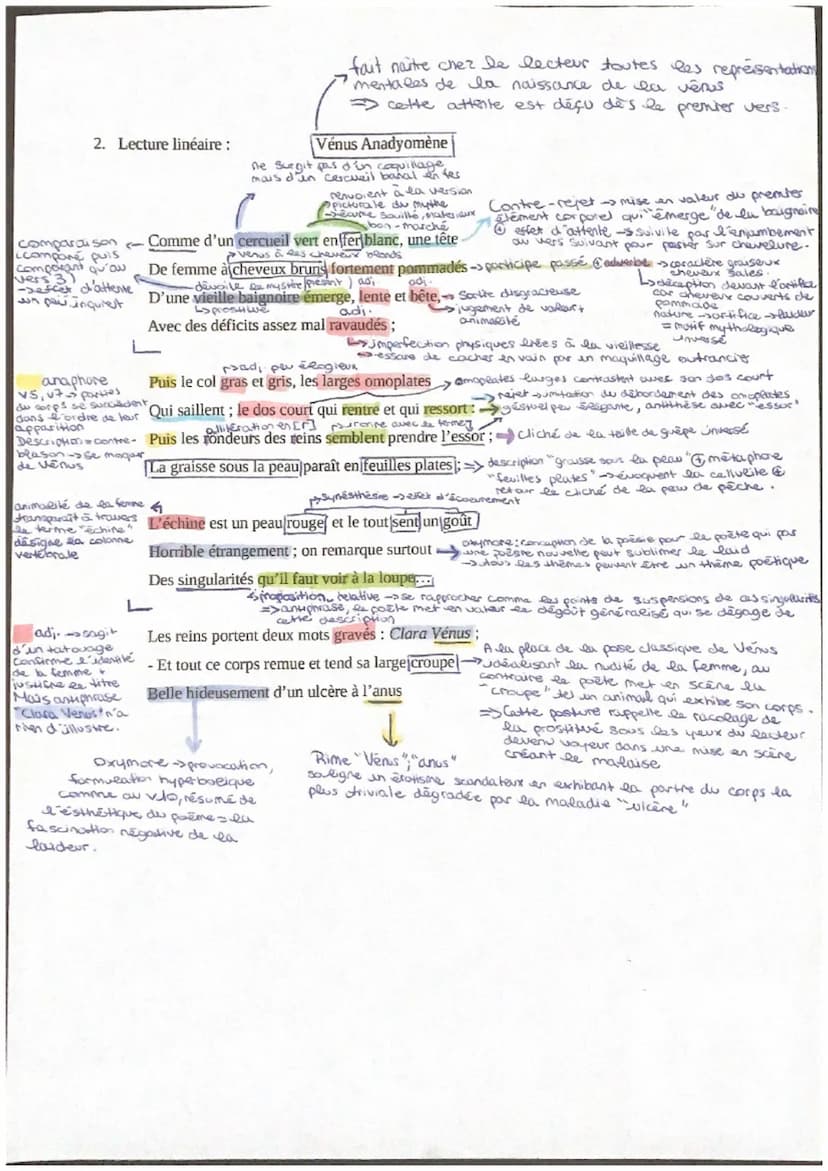 fait naître chez le lecteur toutes les représentation
mentales de la naissance de la vénus
=> cette attente est déçu dès le premier vers.
2. Lecture linéaire :
Vénus Anadyomène
ne surgit pas d'un coquillage
mais d'un cercueil banal en fer
renvoient à la version
picturale du mythe
→ écume souillé, matériaux
bon-marché
Contre-rejet → mise en valeur du premier
élément corporel qui "émerge" de la baignoire
⊕ effet d'attente → suivite par l'enjambement
au vers suivant pour porter sur chevelure.
comparaison
(comparé puis
comparant qu'au
vers 3)
→ effet d'attente
un peu inquiet
Comme d'un cercueil vert en fer blanc, une tête
venus à les cheveux blonds
De femme à cheveux bruns fortement pommadés
→ participe passé ⊕ adverbe → caractère graisseux
cheveux sales.
dévoile le mystère (présent) adj. adj.
D'une vieille baignoire émerge, lente et bête,
→ Sortie disgracieuse
↳ prostitué
adj.
→ jugement de valeur +
animalité
↳ déception devant l'artifice
car cheveux couverts de
pommade
nature → artifice → laideur
= motif mythologique
inversé
Avec des déficits assez mal ravaudés ;
↳ imperfection physiques liées à la vieillesse
→ essaie de cacher en vain par un maquillage outrancier
anaphore
v5, v7 → parties
du corps se succèdent
dans l'ordre de leur
apparition
Description = contre-
blason → se moquer
de Vénus
→ adj peu élogieux
Puis le col gras et gris, les larges omoplates
→ omoplates larges contrastent avec son dos court
→ rejet → imitation du débordement des omoplates
Qui saillent ; le dos court qui rentre et qui ressort :
→ gestuel peu élégante, antithèse avec "essor"
allitération en [r]
Puis les rondeurs des reins semblent prendre l'essor ;
→ cliché de la taille de guêpe inversé
La graisse sous la peau paraît en feuilles plates ;
=> description "graisse sous la peau" ⊕ métaphore
"feuilles plates" → évoquent la cellulite ⊕
retour le cliché de la peau de pêche.
animalité de la femme
transparaît à travers
le terme "échine"
désigne la colonne
vertébrale
→ synesthésie → effet d'écœurement
L'échine est un peu rouge, et le tout sent un goût
Horrible étrangement ; on remarque surtout
→ oxymore : conception de la poésie pour le poète qui par
une poésie nouvelle peut sublimer le laid
→ tous les thèmes peuvent être un thème poétique
Des singularités qu'il faut voir à la loupe...
↳ proposition relative → se rapprocher comme les points de suspensions de ces singularités
=> antiphrase, le poète met en valeur le dégoût généralisé qui se dégage de
cette description
adj. → sagit
d'un tatouage
confirme l'identité
de la femme +
justifie le titre
Mais antiphrase
"Clara Venus" n'a
rien d'illustre.
Les reins portent deux mots gravés : Clara Vénus ;
- Et tout ce corps remue et tend sa large croupe
Belle hideusement d'un ulcère à l'anus
A la place de la pose classique de Vénus
idéalisant la nudité de la femme, au
contraire le poète met en scène la
"croupe" tel un animal qui exhibe son corps.
=> Cette posture rappelle le racolage de
la prostitué sous les yeux du lecteur
devenu voyeur dans une mise en scène
créant le malaise
Oxymore → provocation,
formulation hyperbolique
comme au v10, résumé de
l'esthétique du poème = la
fascination négative de la
laideur.
Rime "Vénus" ; "anus"
souligne un érotisme scandaleux en exhibant la partie du corps la
plus triviale dégradée par la maladie "ulcère"